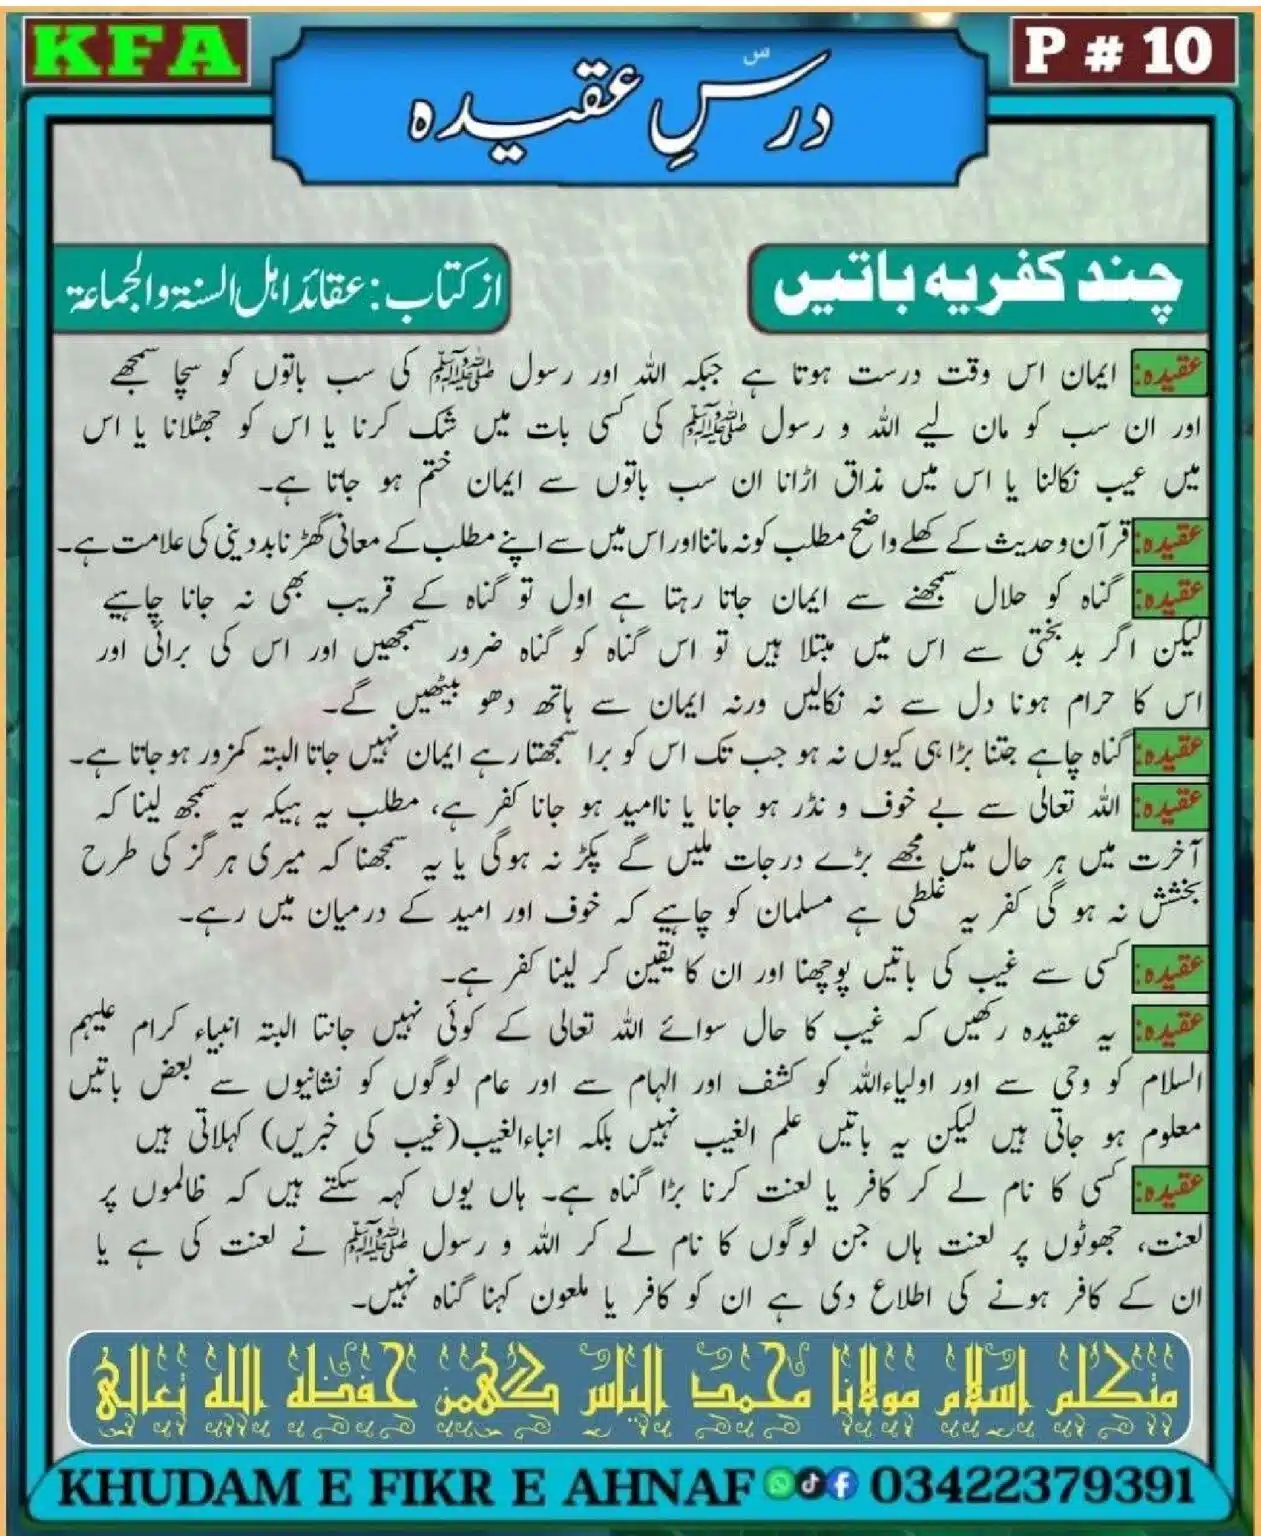 KFA
P # 10
درسِ عقیدہ
چند کفریہ باتیں
از کتاب: عقائد اہل السنۃ والجماعۃ
عقیدہ: ایمان اس وقت درست ہوتا ہے جبکہ اللہ اور رسول ﷺ کی سب باتوں کو سچا سمجھے
اور ان سب کو مان لیے اللہ و رسول ﷺ کی کسی بات میں شک کرنا یا اس کو جھٹلانا یا اس
میں عیب نکالنا یا اس میں مذاق اڑانا ان سب باتوں سے ایمان ختم ہو جاتا ہے۔
عقیدہ: قرآن و حدیث کے کھلے واضح مطلب کو نہ ماننا اور اس میں سے اپنے مطلب کے معانی گھڑنا بد دینی کی علامت ہے۔
عقیدہ: گناہ کو حلال سمجھنے سے ایمان جاتا رہتا ہے اول تو گناہ کے قریب بھی نہ جانا چاہیے
لیکن اگر بد بختی سے اس میں مبتلا ہیں تو اس گناہ کو گناہ ضرور سمجھیں اور اس کی برائی اور
اس کا حرام ہونا دل سے نہ نکالیں ورنہ ایمان سے ہاتھ دھو بیٹھیں گے۔
عقیدہ: گناہ چاہے جتنا بڑا ہی کیوں نہ ہو جب تک اس کو برا سمجھتا رہے ایمان نہیں جاتا البتہ کمزور ہو جاتا ہے۔
عقیدہ: اللہ تعالی سے بے خوف و نڈر ہو جانا یا ناامید ہو جانا کفر ہے، مطلب یہ ہیکہ یہ سمجھ لینا کہ
آخرت میں ہر حال میں مجھے بڑے درجات ملیں گے پکڑ نہ ہوگی یا یہ سمجھنا کہ میری ہر گز کی طرح
بخشش نہ ہو گی کفر یہ غلطی ہے مسلمان کو چاہیے کہ خوف اور امید کے درمیان میں رہے۔
عقیدہ: کسی سے غیب کی باتیں پوچھنا اور ان کا یقین کر لینا کفر ہے۔
عقیدہ: یہ عقیدہ رکھیں کہ غیب کا حال سوائے اللہ تعالی کے کوئی نہیں جانتا البتہ انبیاء کرام علیہم
السلام کو وحی سے اور اولیاءاللہ کو کشف اور الہام سے اور عام لوگوں کو نشانیوں سے بعض باتیں
معلوم ہو جاتی ہیں لیکن یہ باتیں علم الغیب نہیں بلکہ انباءالغیب(غیب کی خبریں) کہلاتی ہیں
عقیدہ: کسی کا نام لے کر کافر یا لعنت کرنا بڑا گناہ ہے۔ ہاں یوں کہہ سکتے ہیں کہ ظالموں پر
لعنت، جھوٹوں پر لعنت ہاں جن لوگوں کا نام لے کر اللہ و رسول ﷺ نے لعنت کی ہے یا
ان کے کافر ہونے کی اطلاع دی ہے ان کو کافر یا ملعون کہنا گناہ نہیں۔
متکلم اسلام مولانا محمد الیاس گھمن حفظہ اللہ تعالیٰ
KHUDAM E FIKR E AHNAF 03422379391